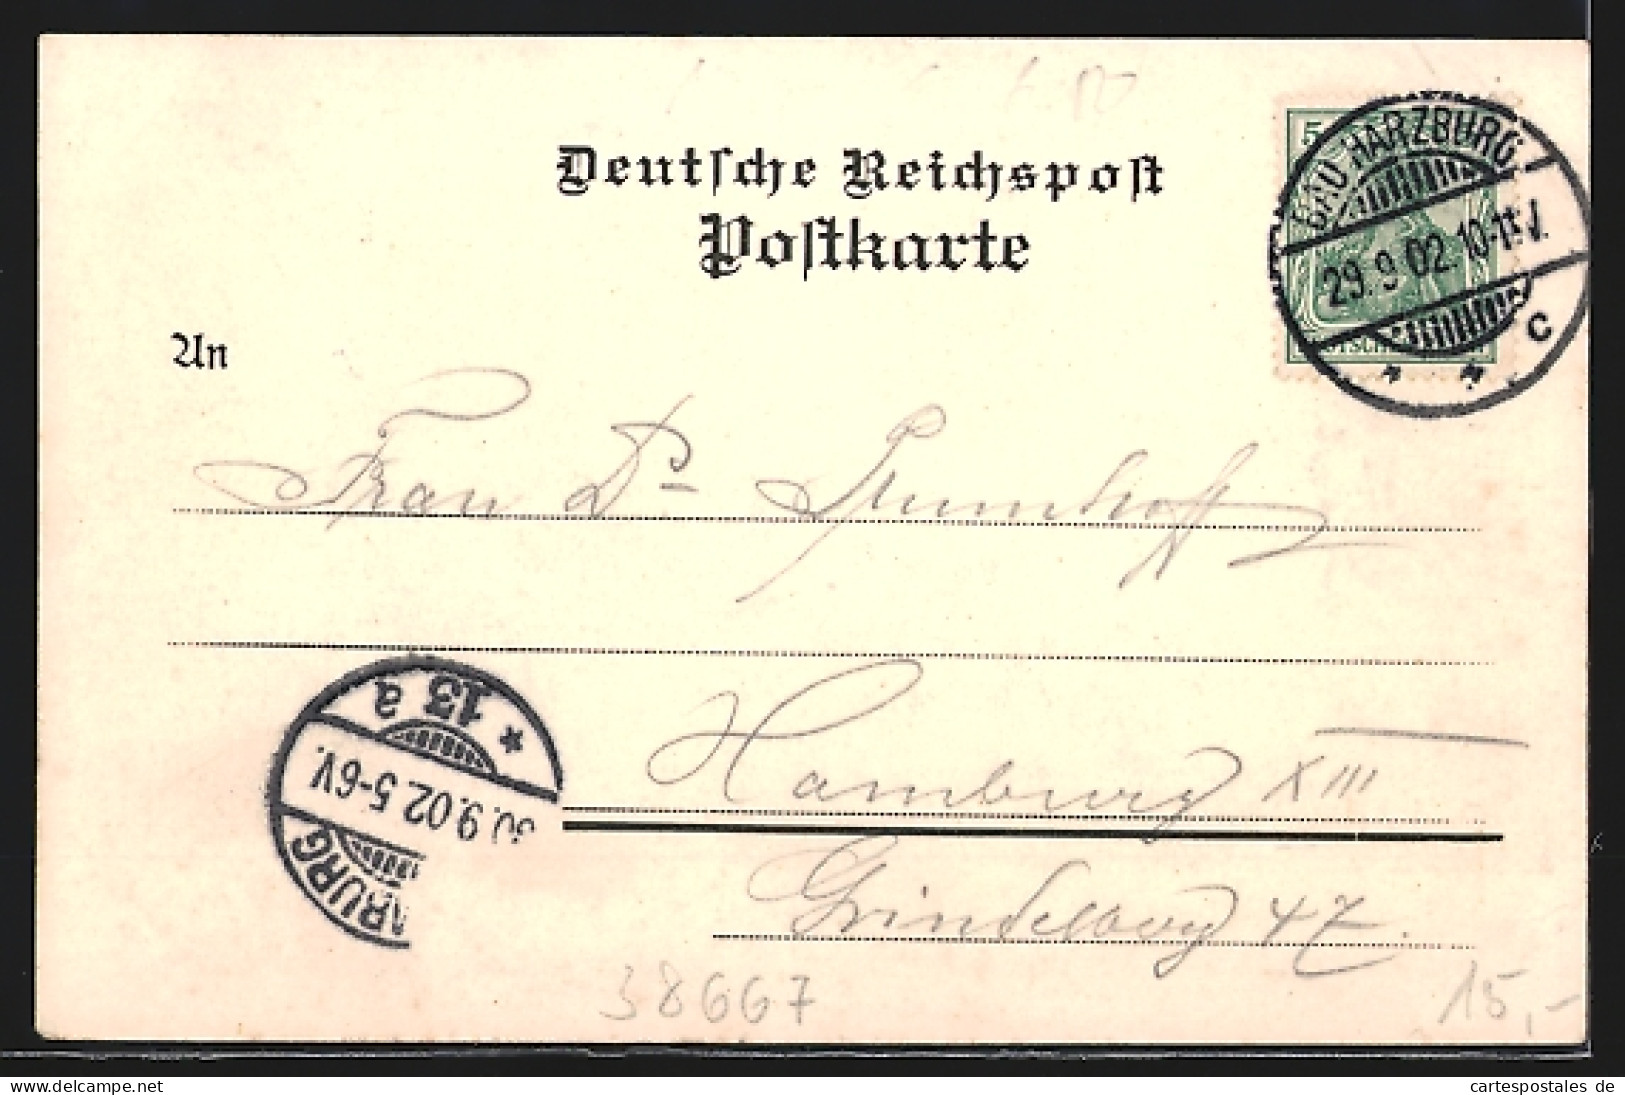 Deutsche Reichspost
Postkarte
5
BAD HARZBURG.
29.9.02.10-11V.
* * C
An
Frau Dr
Hamburg XIII
Grindelweg 47.
* 13 a
30.9.02.5-6V.
BURG
38667
15,-
delcampe.net
cartespostales de